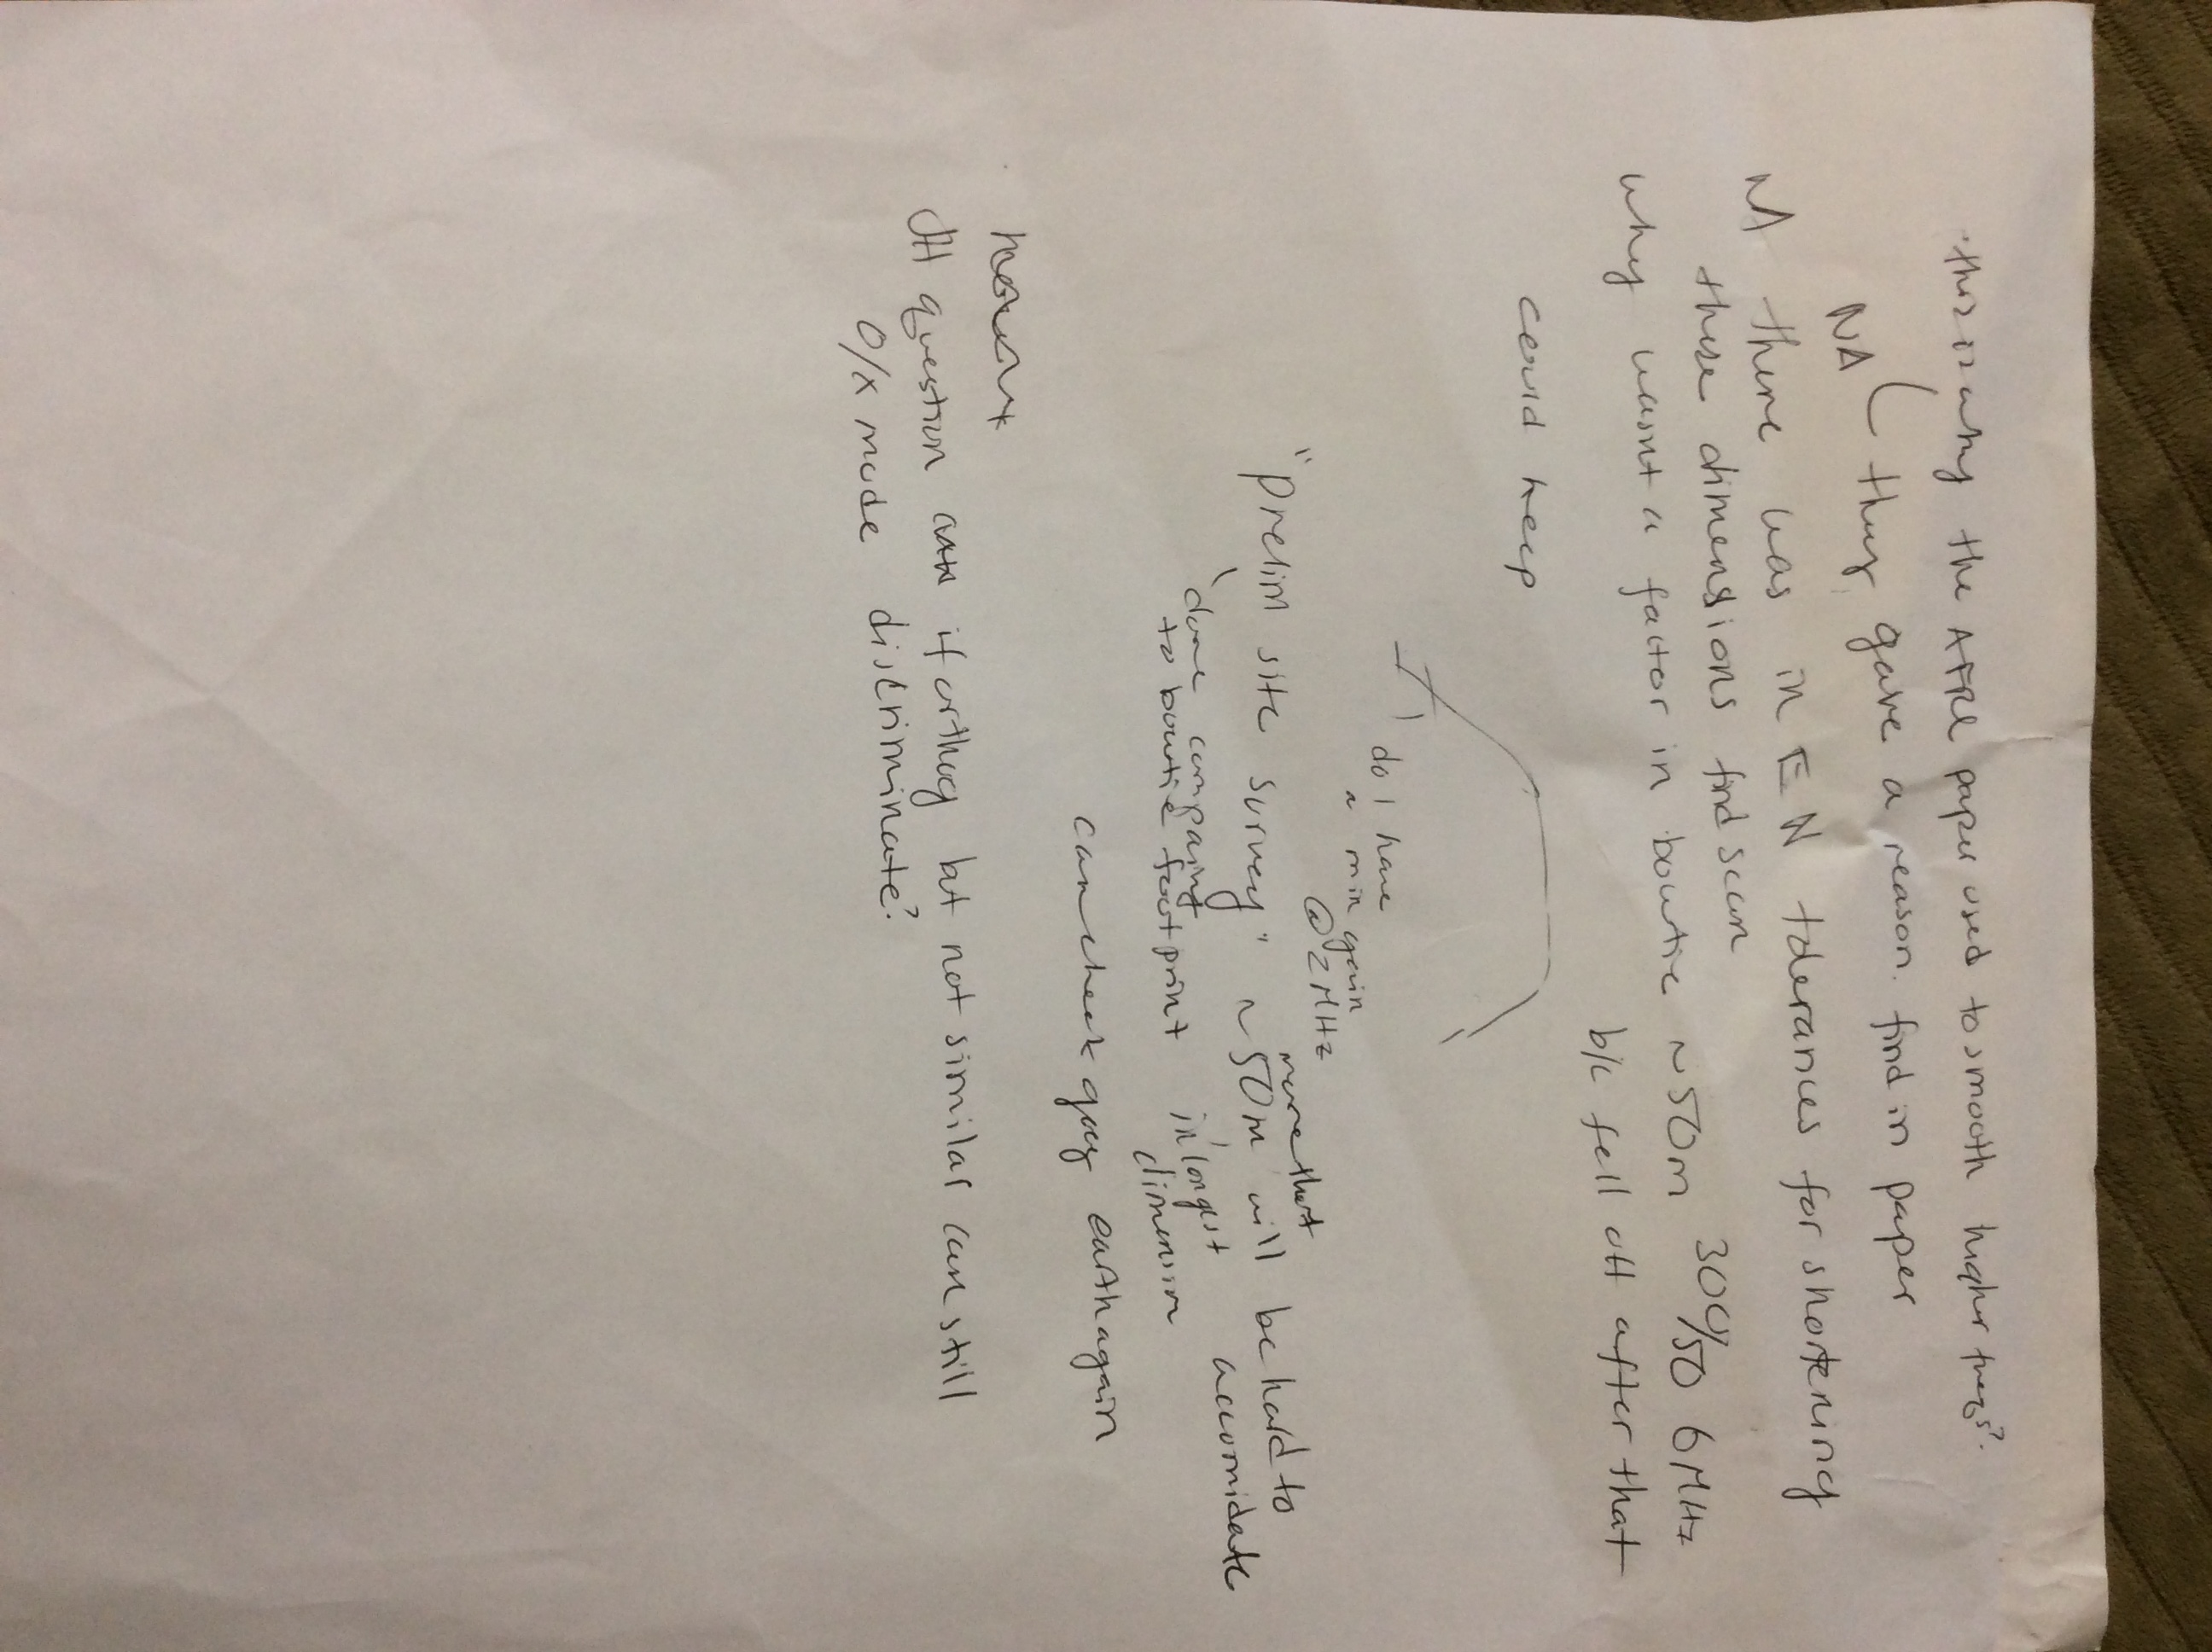 this is why the AFRL paper used to smooth higher freqs?
NA ( they gave a reason. find in paper
NA there was in EN tolerances for shortening
these dimensions find scan
why wasnt a factor in bowtie ~50m 300/50 6MHz
b/c fell off after that
could keep
do I have
a min gain
@ 2MHz
more that
"prelim site survey" ~50m will be hard to
accomidate
done compairing in longest
to bowtie footprint dimension
can check goog earth again
question if orthog but not similar can still
O/X mode discriminate?